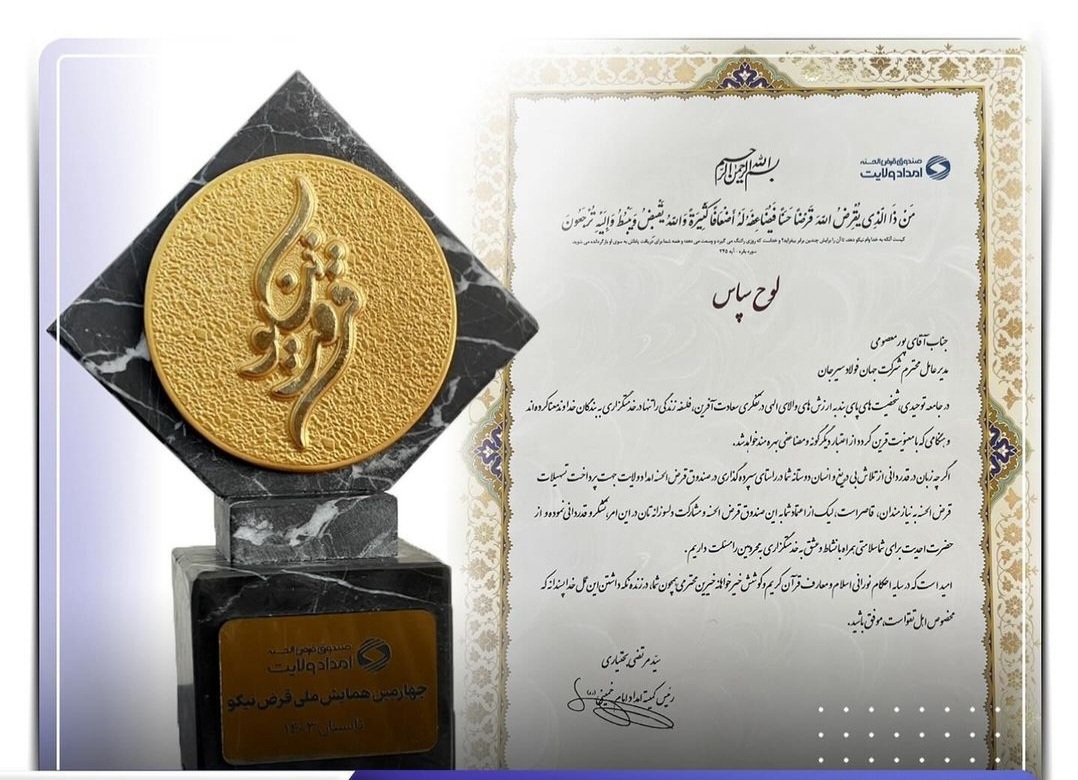 قرض نیکو
صندوق قرض الحسنه
امداد ولایت
چهارمین همایش ملی قرض نیکو
تابستان ۱۴۰۳
صندوق قرض الحسنه
امداد ولایت
بسم الله الرحمن الرحیم
مَن ذَا الَّذِی یُقْرِضُ اللهَ قَرْضًا حَسَنًا فَیُضَاعِفَهُ لَهُ أَضْعَافًا کَثِیرَةً وَاللهُ یَقْبِضُ وَیَبْسُطُ وَإِلَیْهِ تُرْجَعُونَ
کیست آنکه به خدا وام نیکو دهد، تا آن را برایش چندین برابر بیفزاید؟ و خداست که روزی را تنگ می گیرد و وسعت می دهد؛ و همه شما برای دریافت پاداش به سوی او بازگردانده می شوید.
سوره بقره - آیه ۲۴۵
لوح سپاس
جناب آقای پورمعصومی
مدیرعامل محترم شرکت جهان فولاد سیرجان
در جامعه توحیدی، شخصیت های پای بند به ارزش های والای الهی در تفکری سعادت آفرین، فلسفه زندگی را تنها در خدمتگزاری به بندگان خداوند معنا کرده اند
و هنگامی که با معنویت قرین گردد از اعتبار دیگرگونه و مضاعفی بهره مند خواهد شد.
اگرچه زبان در قدردانی از تلاش بی دریغ و انسان دوستانه شما در راستای سپرده گذاری در صندوق قرض الحسنه امداد ولایت جهت پرداخت تسهیلات
قرض الحسنه به نیازمندان، قاصر است، لیک از اعتماد شما به این صندوق قرض الحسنه و مشارکت دلسوزانه تان در این امر، تشکر و قدردانی نموده و از
حضرت احدیت برای شما سلامتی همراه با نشاط و عشق به خدمتگزاری به محرومین را مسئلت داریم.
امید است که در سایه احکام نورانی اسلام و معارف قرآن کریم و کوشش خیرخواهانه خیرین محترمی همچون شما، در زنده نگه داشتن این عمل خداپسندانه که
مخصوص اهل تقواست، موفق باشید.
سید مرتضی بختیاری
رئیس کمیته امداد امام خمینی (ره)